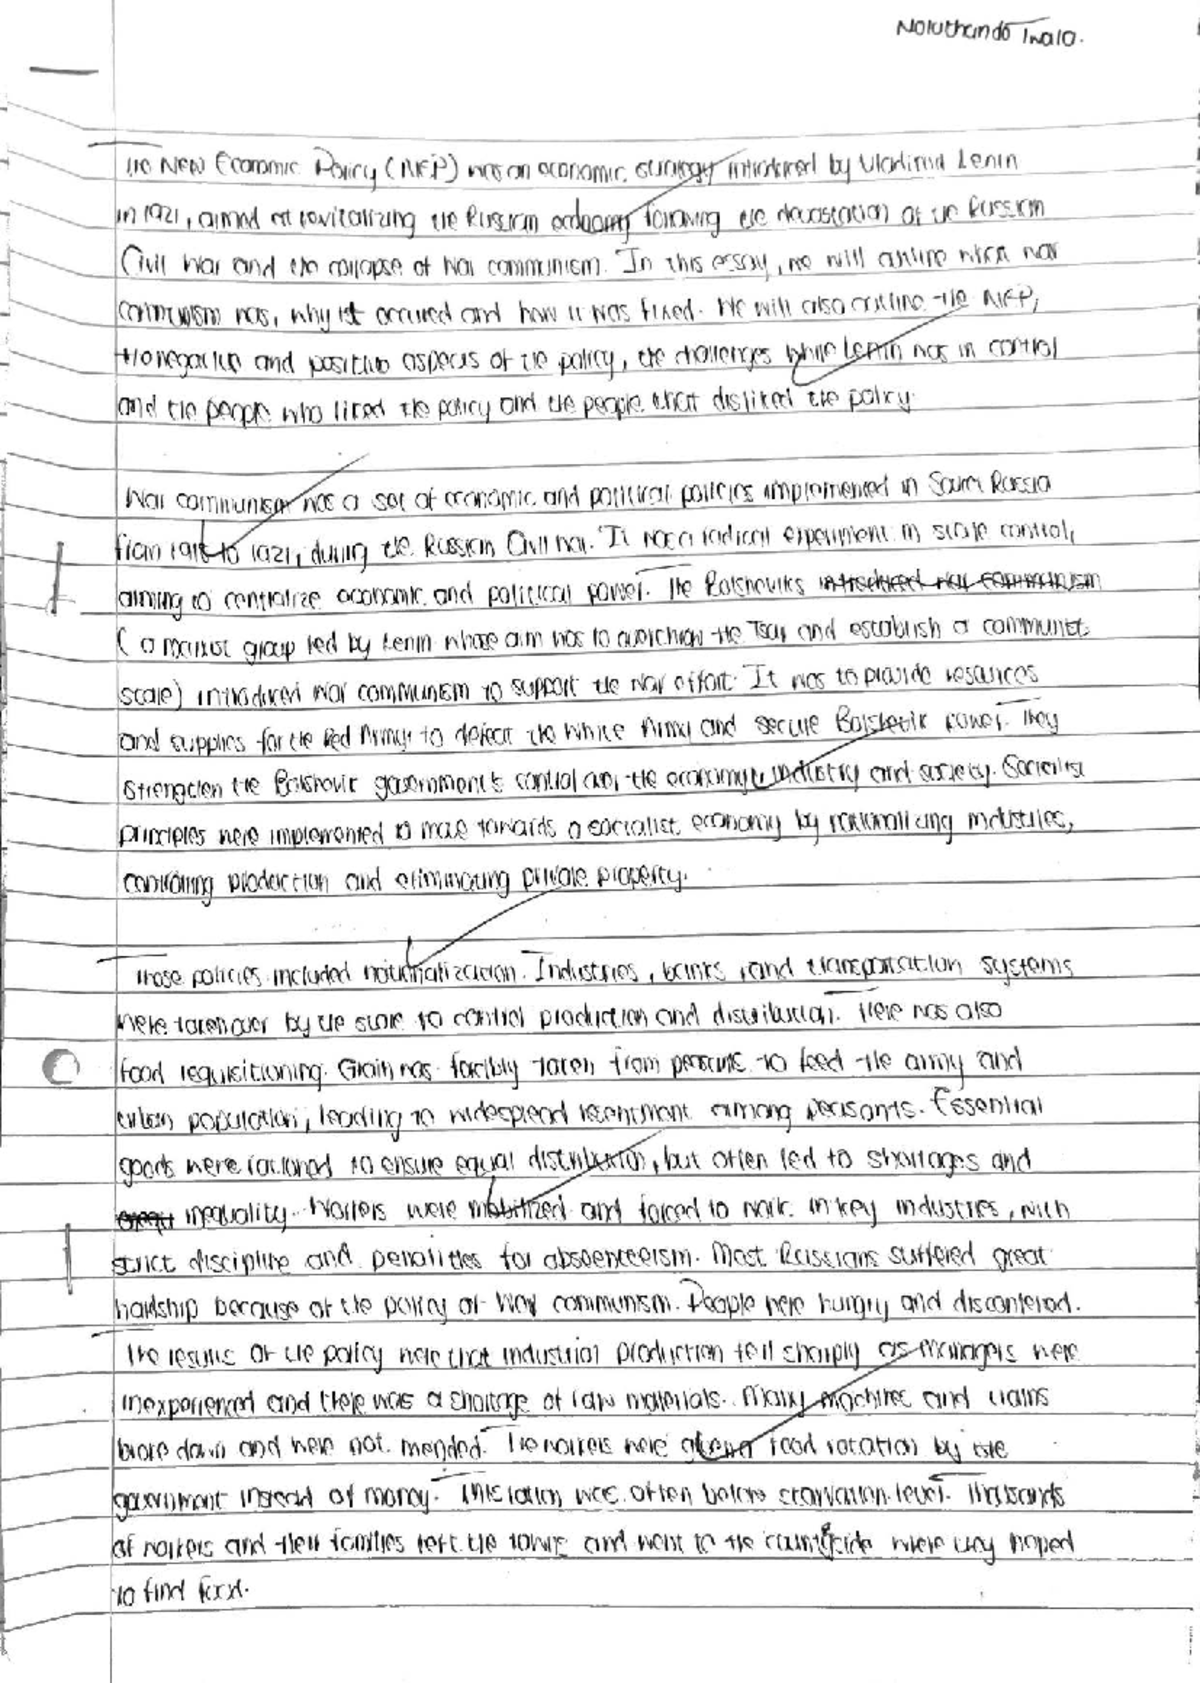 Noluthando Twala.
The New Economic Policy (NEP) was an economic strategy introduced by Vladimir Lenin
in 1921, aimed at revitalizing the Russian economy following the devastation of the Russian
Civil War and the collapse of War communism. In this essay, we will outline what war
communism was, why it occured and how it was fixed. We will also outline the NEP,
the negative and positive aspects of the policy, the challenges while Lenin was in control
and the people who liked the policy and the people that disliked the policy.
War communism was a set of economic and political policies implemented in Soviet Russia
from 1918 to 1921, during the Russian Civil war. It was a radical experiment in state control,
aiming to centralize economic and political power. The Bolsheviks introduced war communism
( a marxist group led by Lenin whose aim was to overthrow the Tsar and establish a communist
state) introduced war communism to support the war effort. It was to provide resources
and supplies for the Red Army to defeat the White Army and secure Bolshevik power. They
strengthen the Bolshevik government's control over the economy, industry and society. Socialist
principles were implemented to move towards a socialist economy by nationalizing industries,
controlling production and eliminating private property.
Those policies included nationalization. Industries, banks, and transportation systems
were taken over by the state to control production and distribution. There was also
food requisitioning. Grain was forcibly taken from peasants to feed the army and
urban population, leading to widespread resentment among peasants. Essential
goods were rationed to ensure equal distribution, but often led to shortages and
inequality. Workers were mobilized and forced to work in key industries, with
strict discipline and penalities for abseenteeism. Most Russians suffered great
hardship because of the policy of War communism. People were hungry and discontened.
The results of the policy were that industrial production fell sharply as managers were
inexperienced and there was a shortage of raw materials. Many machines and trains
broke down and were not mended. The workers were given food rotation by the
government instead of money. This ration was often below starvation level. Thousands
of workers and their families left the towns and went to the countryside where they hoped
to find food.